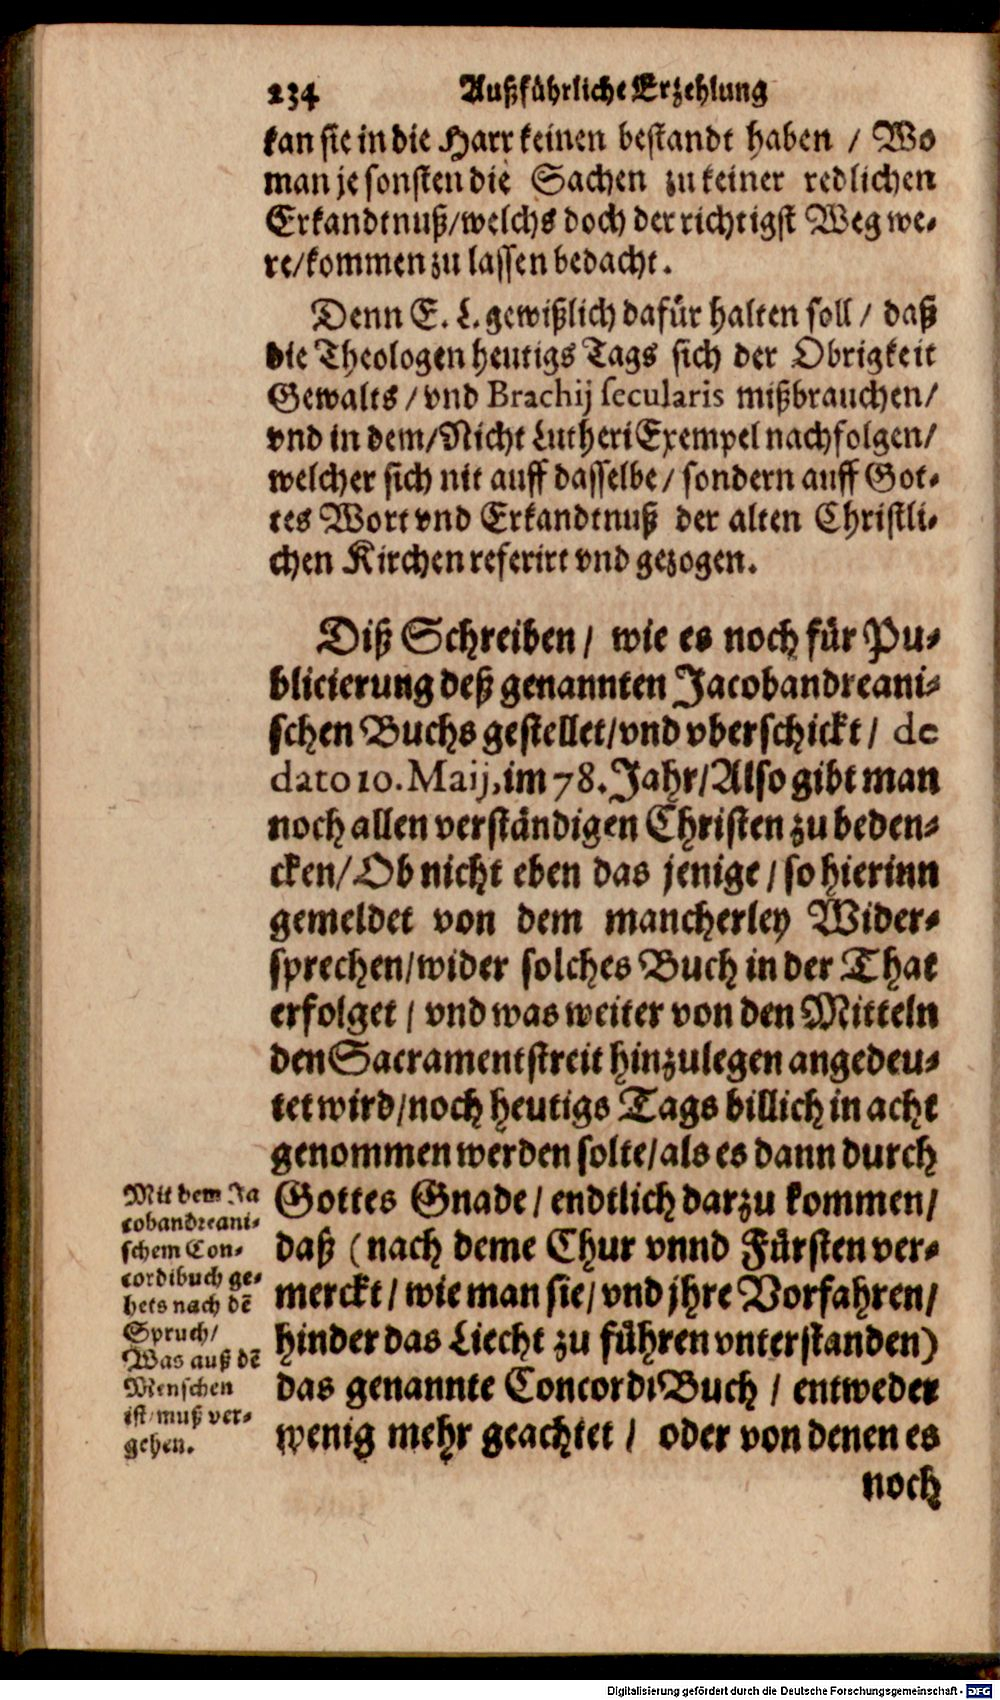 234 Außführliche Erzehlung
kan sie in die Harr keinen bestandt haben / Wo
man je sonsten die Sachen zu keiner redlichen
Erkandtnuß/welchs doch der richtigst Weg we-
re/kommen zu lassen bedacht.
Denn E. L. gewißlich dafür halten soll / daß
die Theologen heutigs Tags sich der Obrigkeit
Gewalts / vnd Brachij secularis mißbrauchen/
vnd in dem/Nicht Lutheri Exempel nachfolgen/
welcher sich nit auff dasselbe / sondern auff Got-
tes Wort vnd Erkandtnuß der alten Christli-
chen Kirchen referirt vnd gezogen.
Diß Schreiben / wie es noch für Pu-
blicierung deß genannten Jacobandreani-
schen Buchs gestellet/vnd vberschickt / de
dato 10. Maij, im 78. Jahr/Also gibt man
noch allen verständigen Christen zu beden-
cken/Ob nicht eben das jenige / so hierinn
gemeldet von dem mancherley Wider-
sprechen/wider solches Buch in der That
erfolget / vnd was weiter von den Mitteln
den Sacramentstreit hinzulegen angedeu-
tet wird/noch heutigs Tags billich in acht
genommen werden solte/als es dann durch
Gottes Gnade / endtlich darzu kommen/
daß (nach deme Chur vnnd Fürsten ver-
merckt / wie man sie/ vnd jhre Vorfahren/
hinder das Liecht zu führen vnterstanden)
das genannte ConcordiBuch / entweder
wenig mehr geachtet / oder von denen es
noch
Mit dem Ja
cobandreani-
schem Con-
cordibuch ge-
hets nach dē
Spruch/
Was auß dē
Menschen
ist/muß ver-
gehen.
Digitalisierung gefördert durch die Deutsche Forschungsgemeinschaft - DFG